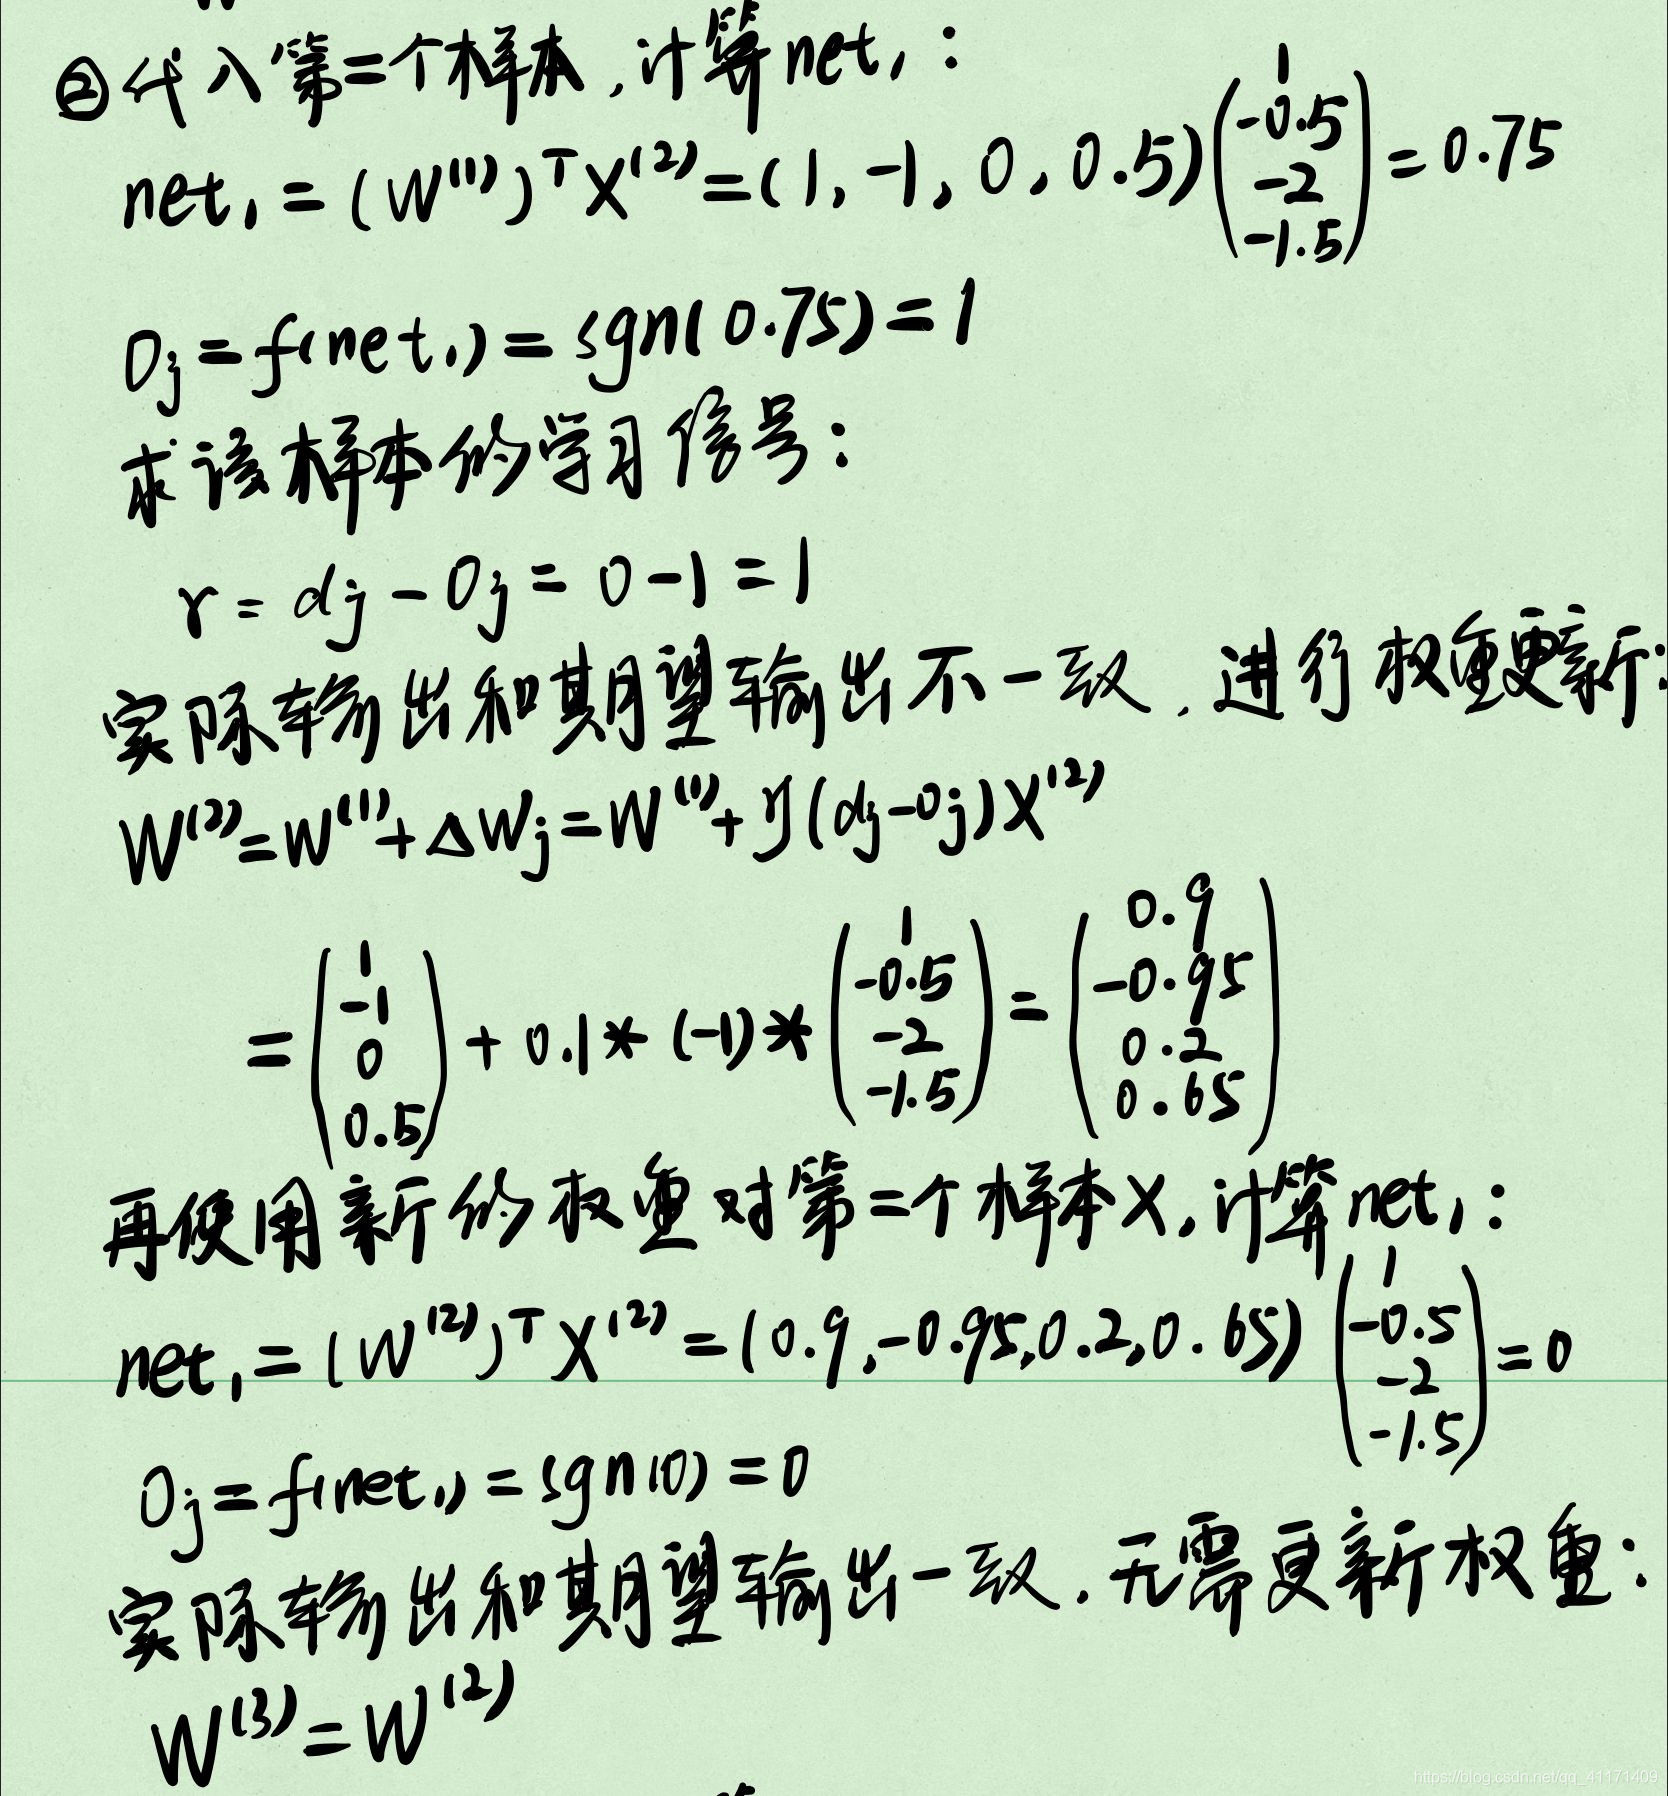 ②代入第二个样本,计算net₁:
net₁=(W⁽¹⁾)ᵀX⁽²⁾=(1,-1,0,0.5)(1 -0.5 -2 -1.5)=0.75
Oj=f(net₁)=sgn(0.75)=1
求该样本的学习信号:
r=dj-Oj=0-1=1
实际输出和期望输出不一致,进行权重更新:
W⁽²⁾=W⁽¹⁾+ΔWj=W⁽¹⁾+η(dj-Oj)X⁽²⁾
=(1 -1 0 0.5)+0.1*(-1)*(1 -0.5 -2 -1.5)=(0.9 -0.95 0.2 0.65)
再使用新的权重对第二个样本X,计算net₁:
net₁=(W⁽²⁾)ᵀX⁽²⁾=(0.9,-0.95,0.2,0.65)(1 -0.5 -2 -1.5)=0
Oj=f(net₁)=sgn(0)=0
实际输出和期望输出一致,无需更新权重:
W⁽³⁾=W⁽²⁾
https://blog.csdn.net/qq_41171409